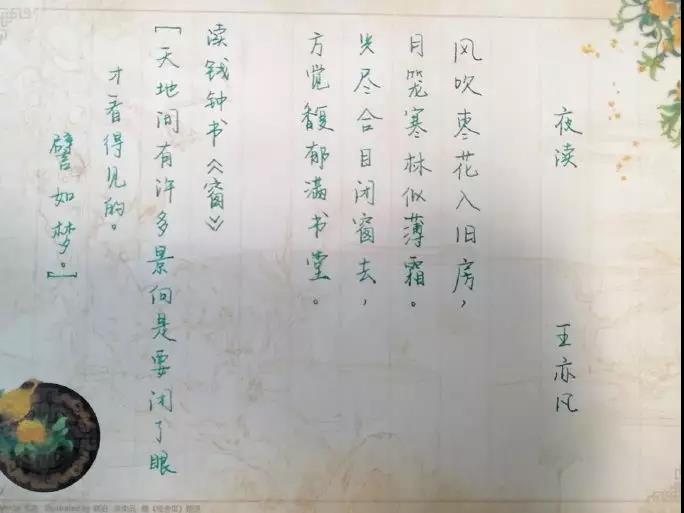 夜读
王亦凡
风吹枣花入旧房，
月笼寒林似薄霜。
灯尽合目闭窗去，
方觉馥郁满书堂。
读钱钟书《窗》
[天地间有许多景何是要闭了眼
才看得见的。
譬如梦。]